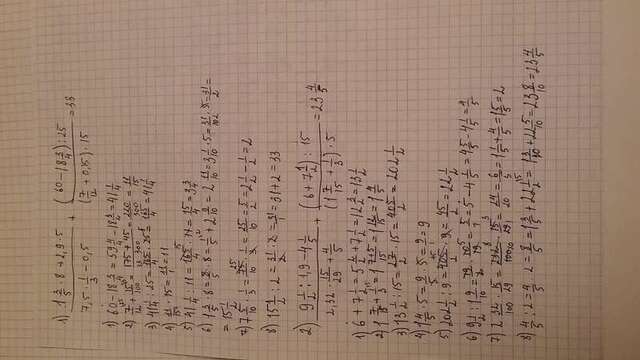 1) (1 3/5 · 8 + 2,9 · 5) / (7,5 · 1/3 − 0,5) + ((60 − 18 3/4) : 25) / ((7/12 + 0,15) · 15) = 33
1) 60 − 18 3/4 = 59 4/4 − 18 3/4 = 41 1/4
2) 7/12 + 15/100 = 175 + 45 / 300 = 220/300 = 11/15
3) 41 1/4 : 25 = 165/4 · 25 = 165/4 = 41 1/4
4) 11/15 · 15 = 11/1 = 11
5) 41 1/4 : 11 = 165/4 · 11 = 15/4 = 3 3/4
6) 1 3/5 · 8 = 8/5 · 8 = 1/5 + 2 9/10 = 2 11/10 = 3 1/10 · 5 = 31/10 · 5 = 31/2 =
= 15 1/2
7) 7 5/10 · 1/3 = 75/10 · 1/3 = 25/10 = 5/2 = 2 1/2 − 1/2 = 2
8) 15 1/2 : 2 = 31/2 · 2 = 31/1 = 31 + 2 = 33
2) (9 1/2 : 1,9 − 4 1/5) / (2,32 · 15/29 + 4/5) + ((6 + 7 1/2) : 15) / ((1 7/15 + 1/3) · 5) = 23 4/5
1) 6 + 7 1/2 = 5 2/2 + 7 1/2 = 12 3/2 = 13 1/2
2) 1 7/15 + 1/3 = 1 7+5/15 = 1 12/15 = 1 4/5
3) 13 1/2 : 15 = 27/2 · 15 = 405/2 = 202 1/2
4) 1 4/5 · 5 = 9/5 · 5 = 9/1 = 9
5) 202 1/2 : 9 = 405/2 · 9 = 45/2 = 22 1/2
6) 9 1/2 : 1 9/10 = 19/2 · 10/19 = 5/1 = 5 − 4 1/5 = 4 5/5 − 4 1/5 = 4/5
7) 2 32/100 · 15/29 = 232/100 · 15/29 = 24/20 = 6/5 = 1 1/5 + 4/5 = 1 5/5 = 2
8) 4/5 : 2 = 4/5 · 2 = 8/5 = 1 3/5 + 22 1/2 = 1 3/10 + 22 5/10 = 23 8/10 = 23 4/5